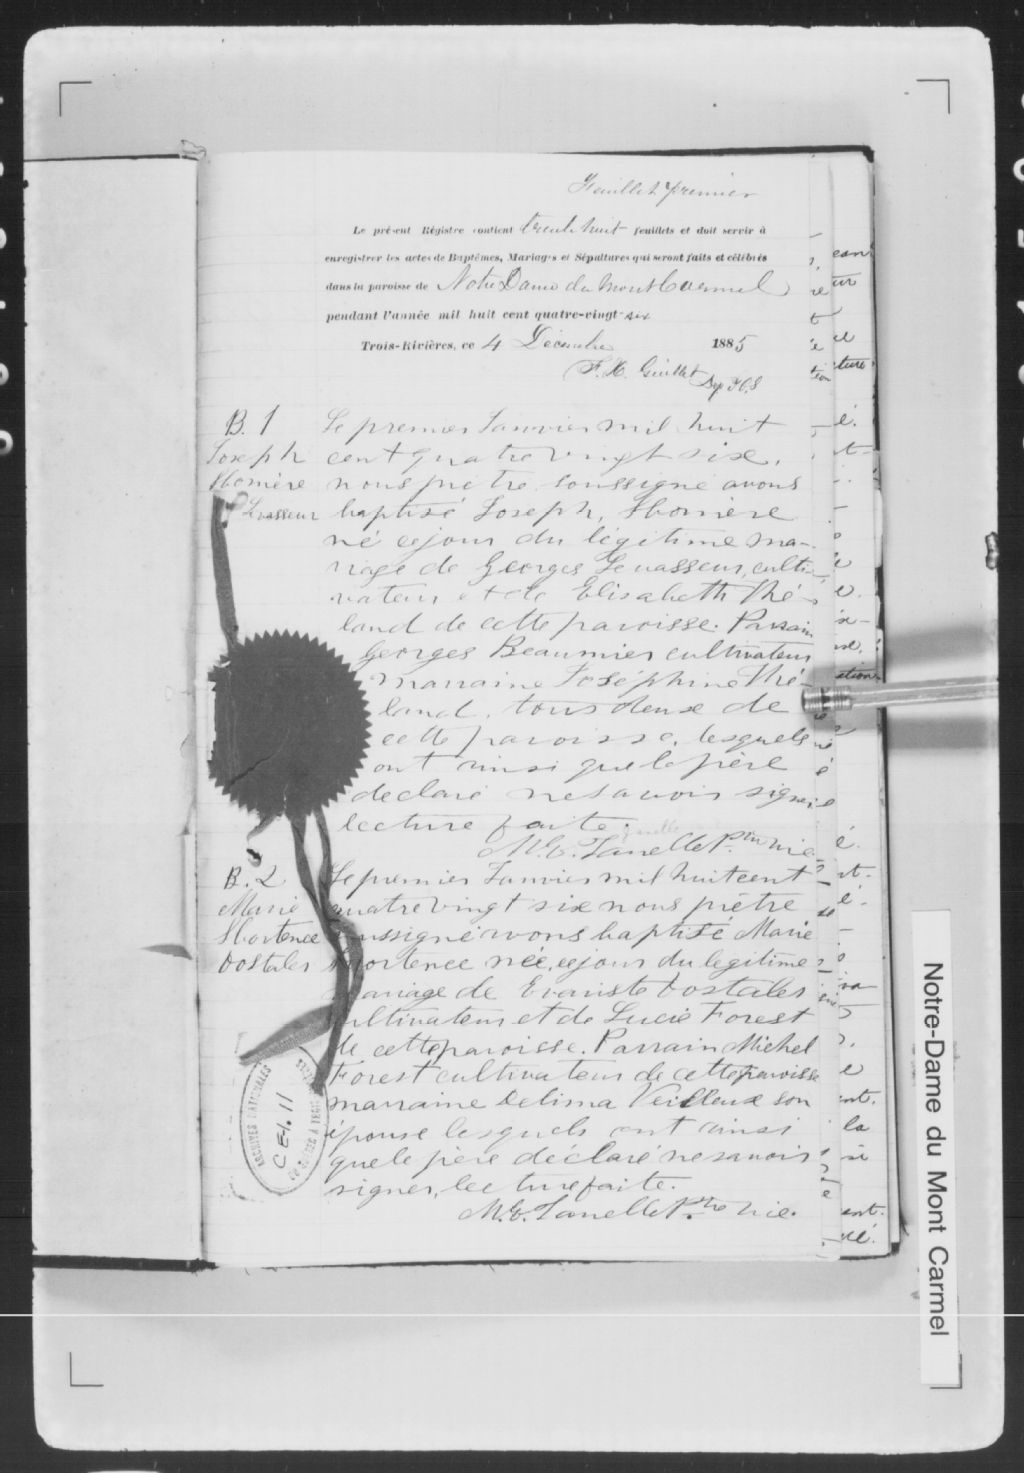 Feuillet premier
Le présent Régistre contient trente huit feuillets et doit servir à
enregistrer les actes de Baptêmes, Mariages et Sépultures qui seront faits et célébrés
dans la paroisse de Notre Dame du Mont Carmel
pendant l'année mil huit cent quatre-vingt-six
Trois-Rivières, ce 4 Décembre 1885
F. X. Guillet Dep
B. 1
Joseph
Homère
Levasseur
Le premier Janvier mil huit
cent quatre vingt six,
nous prêtre soussigné avons
baptisé Joseph, Homère
né cejour du légitime ma-
riage de Georges Levasseur, culti-
vateur et de Elisabeth Thé-
land de cette paroisse. Parrain
Georges Beaumier cultivateur
marraine Joséphine Thé-
land, tous deux de
cette paroisse, lesquels
ont ainsi que le père
declaré ne savoir signer
lecture faite.
B. 2
Marie
Hortence
Dostaler
Le premier Janvier mil huit cent
quatre vingt six nous prêtre
soussigné avons baptisé Marie
Hortence née, cejour du legitime
mariage de Evariste Dostaler
cultivateur et de Lucie Forest
de cette paroisse. Parrain Michel
Forest cultivateur de cette paroisse
marraine Delima Veilleux son
épouse lesquels ont ainsi
que le père déclaré ne savoir
signer, lecture faite.
ARCHIVES NATIONALES
CE1.11
Notre-Dame du Mont Carmel